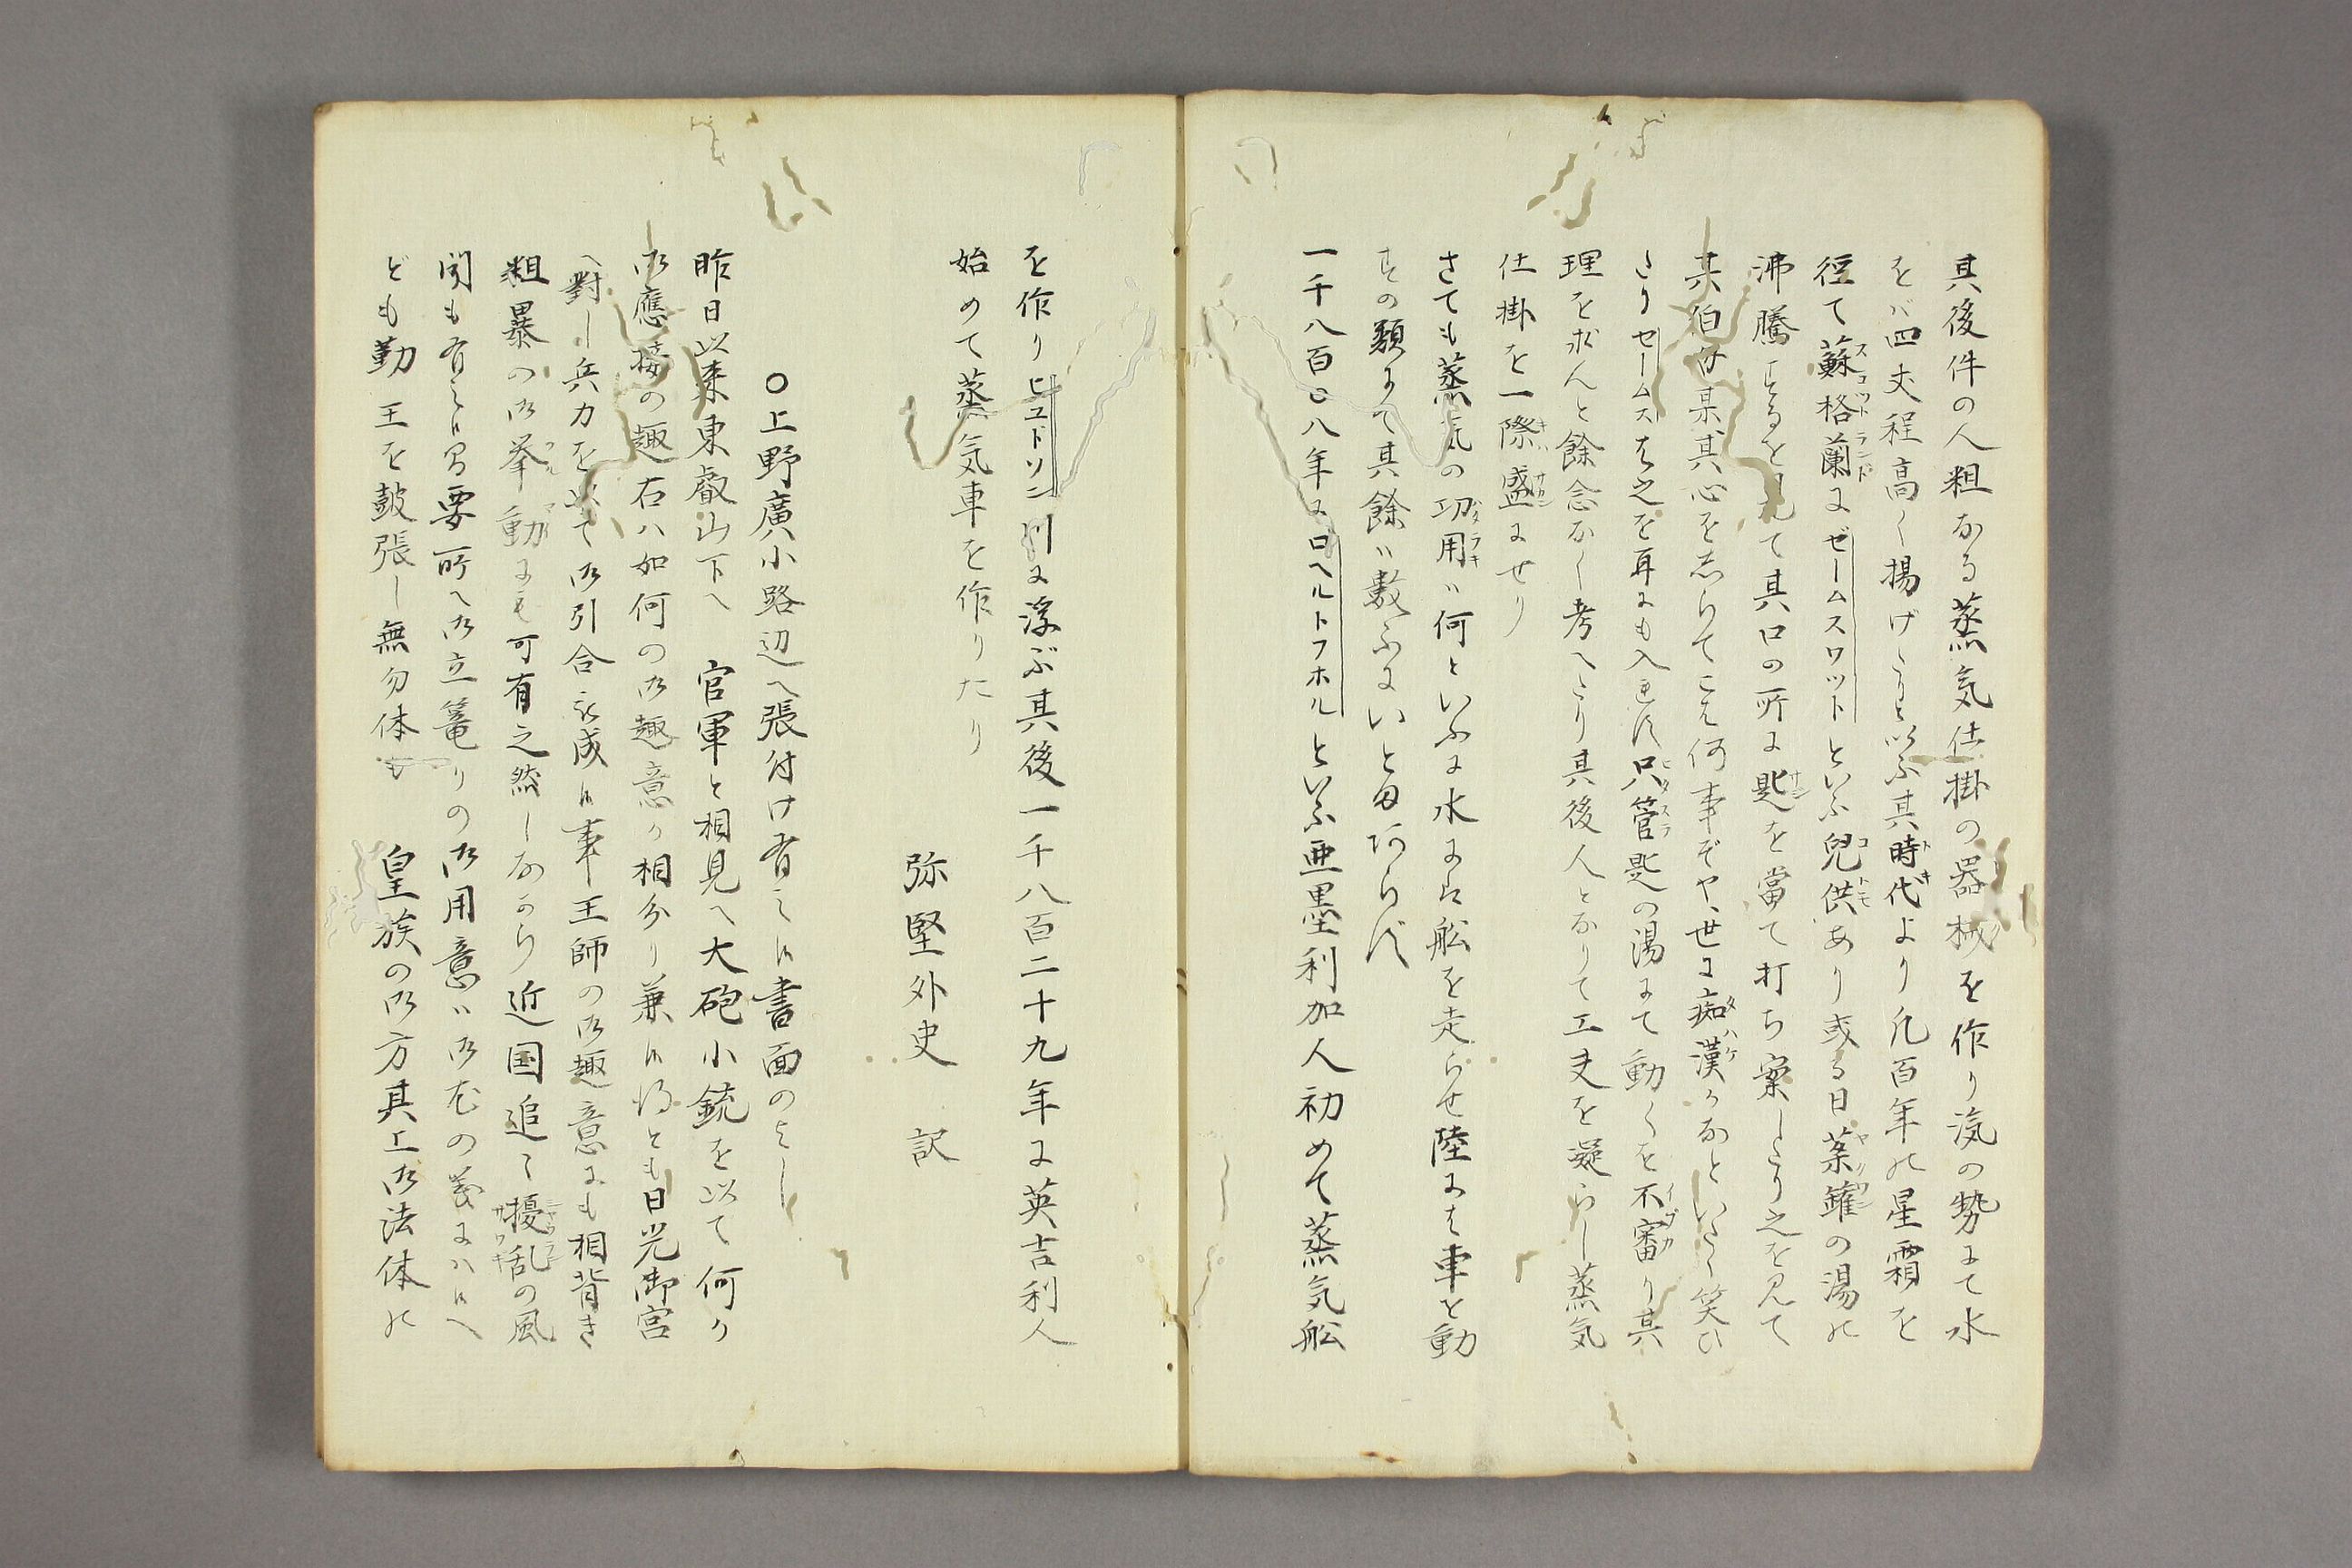 其後件の人粗なる蒸気仕掛の器械を作り気の勢にて水
をバ四丈程高く揚げしと以ふ其時代より凡百年の星霜を
径て蘇格蘭にゼームスワットといふ兒供あり或る日薬鑵の湯の
沸騰するを見て其口の所に匙を當て打ち案したり之を見て
其伯母某其心を志らてこハ何事ぞや、世に痴漢かなといたく笑ひ
たりセームスハ之を耳にも入れず只管匙の湯にて動くを不審り其
理を求んと餘念なく考へたり其後人となりて工夫を凝らし蒸気
仕掛を一際盛にせり
さても蒸気の功用ハ何といふに水にハ舩を走らせ陸にハ車を動
すの類にて其餘ハ數ふにいとま阿らず
一千八百〇八年にロヘルトフホルといふ亜墨利加人初めて蒸気舩
を作りヒユドソン川に浮ぶ其後一千八百二十九年に英吉利人
始めて蒸気車を作りたり
弥堅外史 訳
〇上野廣小路辺へ張付け有之候書面のよし
昨日以来東叡山下へ 官軍と相見へ大砲小銃を以て何か
御應接の趣右ハ如何の御趣意か相分り兼候得とも日光御宮
へ對し兵力を以て御引合被成候事王師の御趣意にも相背き
粗暴の御挙動にも可有之然しながら近国追々擾乱の風
聞も有之候間要所へ御立篭りの御用意ハ御尤の義にハ候へ
ども勤 王を鼓張し無勿体も 皇族の御方其上御法体の